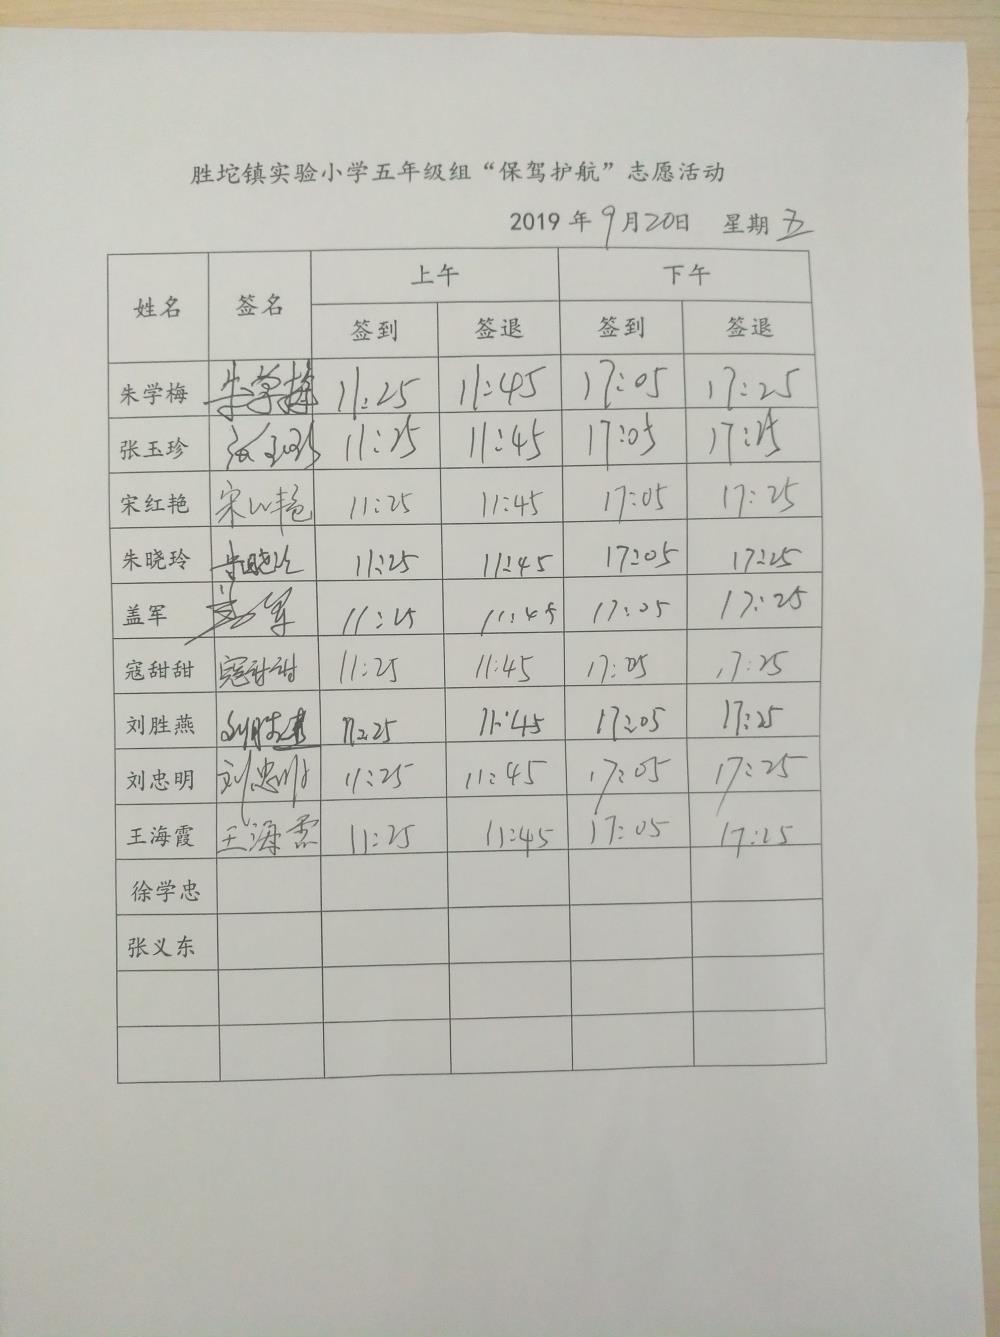 胜坨镇实验小学五年级组“保驾护航”志愿活动
2019 年 9月20日 星期五
姓名 签名 上午 下午
签到 签退 签到 签退
朱学梅 朱学梅 11:25 11:45 17:05 17:25
张玉珍 张玉珍 11:25 11:45 17:05 17:25
宋红艳 宋红艳 11:25 11:45 17:05 17:25
朱晓玲 朱晓玲 11:25 11:45 17:05 17:25
盖军 盖军 11:25 11:45 17:05 17:25
寇甜甜 寇甜甜 11:25 11:45 17:05 17:25
刘胜燕 刘胜燕 11:25 11:45 17:05 17:25
刘忠明 刘忠明 11:25 11:45 17:05 17:25
王海霞 王海霞 11:25 11:45 17:05 17:25
徐学忠
张义东